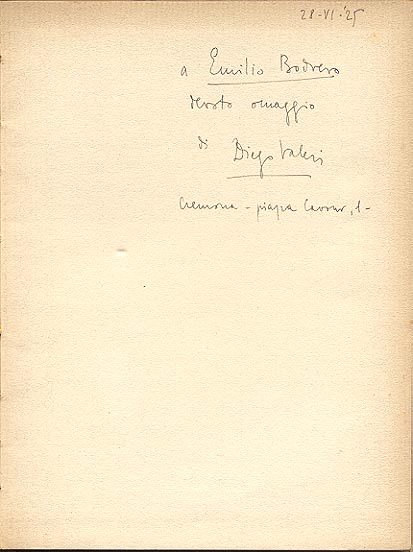 28-VI-'25
a Emilio Bodrero
devoto omaggio
di
Diego Valeri
Cremona - piazza Cavour, 1-